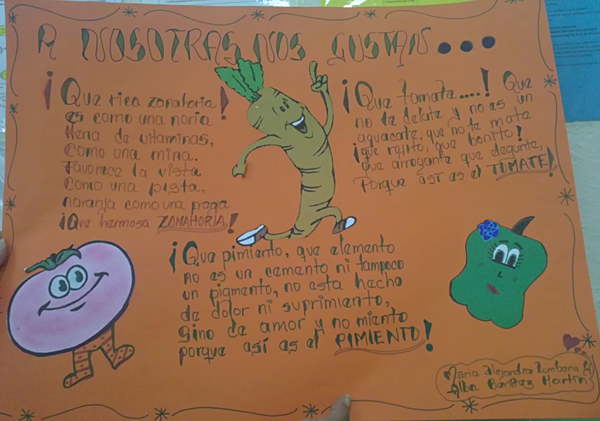 A NOSOTRAS NOS GUSTAN...
¡Que rica zanahoria!
es como una noria
llena de vitaminas,
como una mina.
Favorece la vista
como una pista,
naranja como una paga
¡Que hermosa ZANAHORIA!
¡Que tomate....! Que
no te delate y no es un
aguacate, que no te mate
¡que rojito, que bonito!
que arrogante que degunte,
Porque así es el TOMATE!
¡Que pimiento, que elemento
no es un cemento ni tampoco
un pigmento, no esta hecho
de dolor ni suprimiento,
Sino de amor y no miento
porque así as el PIMIENTO!
Maria Alejandra Lombana
Alba Benitez Martin